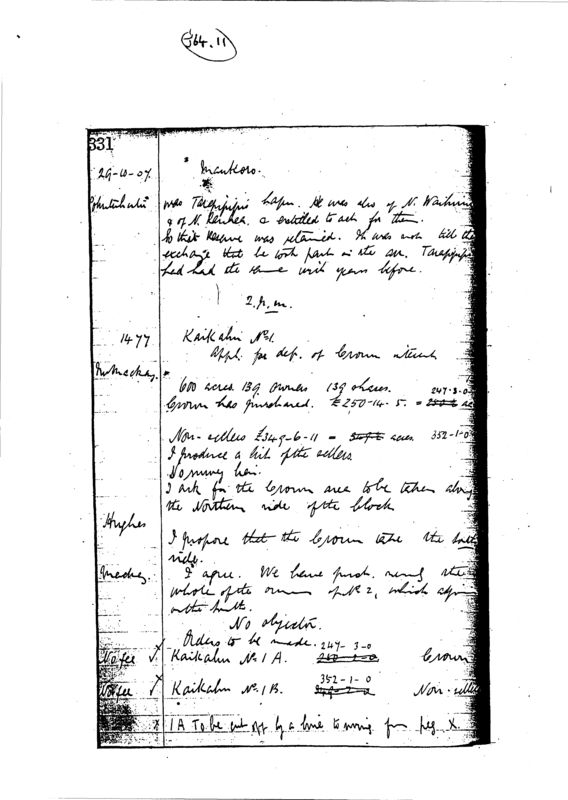 364.11
331
29-10-07. Maukoro.
was Tarapipipi hapu. He was also of N.
& of N. & entitled to act for them.
So this Reserve was retained. It was not till the
exchange that he took part in the Tarapipipi
had had the same years before.
2. p.m.
1477 Kaikahu No 1.
Appl. for def. of Crown interest
Mr Mackay.
600 acres 139 owners 139 shares. 247-3-0
Crown has purchased. £250-14-5. =
Non-sellers £349-6-11 = acres 352-1-0
I produce a list of the sellers
No survey lien.
I ask for the Crown area to be taken along
the Northern side of the block
Hughes
I propose that the Crown take the
side.
Mackay. I agree. We have purch. nearly the
whole of the owners of No 2, which
on the south.
No objector.
Orders to be made. 247-3-0
No fee Kaikahu No 1 A. Crown
352-1-0
No fee Kaikahu No. 1 B. Non-
x 1A To be cut off by a line from peg X.